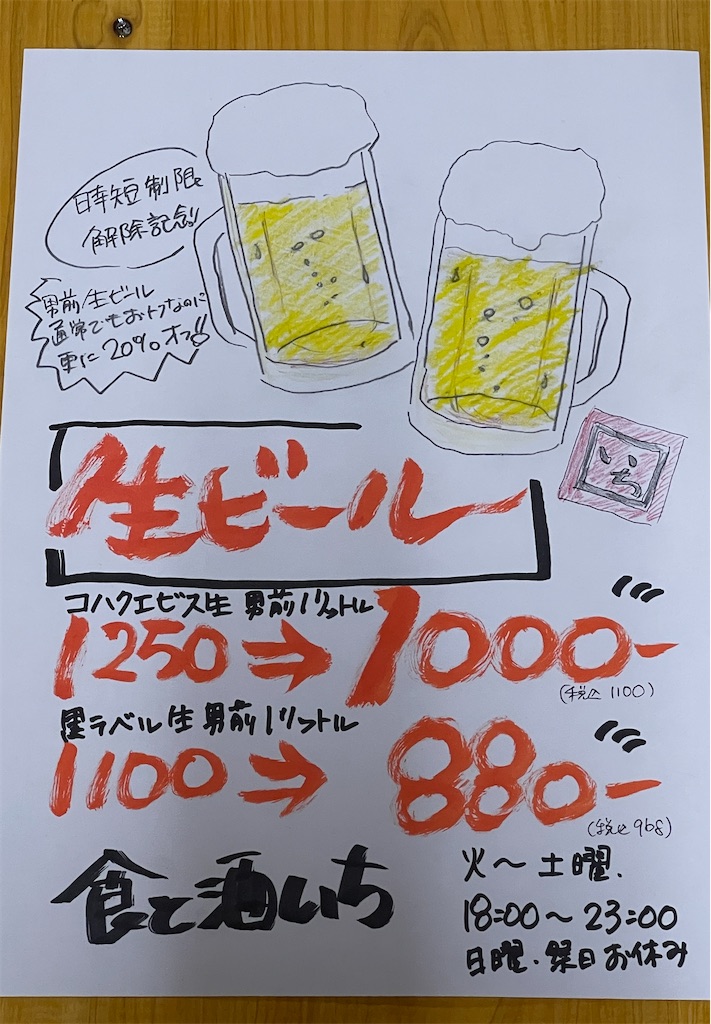 時短制限
解除記念!!
男前!生ビール
通常でもおトクなのに
更に20%オフ!!
いち
生ビール
コハクエビス生 男前1リットル
1250⇒1000-
(税込 1100)
黒ラベル生 男前1リットル
1100⇒880-
(税込 968)
食と酒いち
火〜土曜.
18:00〜23:00
日曜・祭日お休み